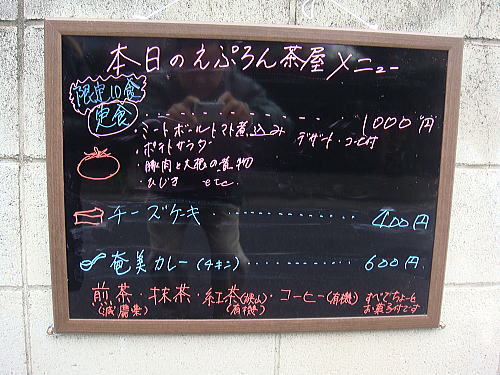 本日のえぷろん茶屋メニュー
限定10食
定食 1000円
・ミートボールトマト煮込み デザート・コーヒー付
・ポテトサラダ
・豚肉と大根の煮物
・ひじき etc.
チーズケーキ 400円
奄美カレー(チキン) 600円
煎茶・抹茶・紅茶(狭山)・コーヒー(有機) すべてちょこっと
(減農薬) (有機) お菓子付です